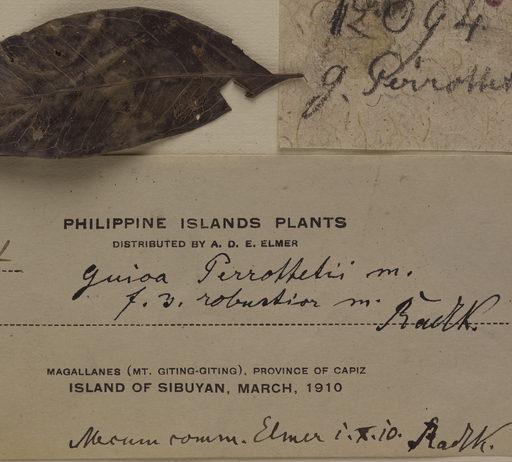 12094
g. Perrottet
PHILIPPINE ISLANDS PLANTS
DISTRIBUTED BY A. D. E. ELMER
Guioa Perrottetii m.
f. 3. robustior m.
Radlk.
MAGALLANES (MT. GITING-GITING), PROVINCE OF CAPIZ
ISLAND OF SIBUYAN, MARCH, 1910
Mecum comm. Elmer i. X. 10. Radlk.